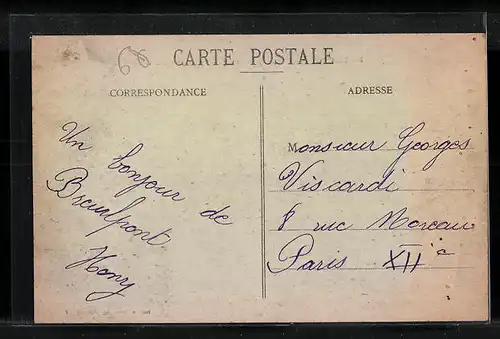 60
CARTE POSTALE
CORRESPONDANCE
ADRESSE
Un bonjour de
Breuilpont
Hony
Monsieur Georges
Viscardi
8 rue Moreau
Paris XIIe